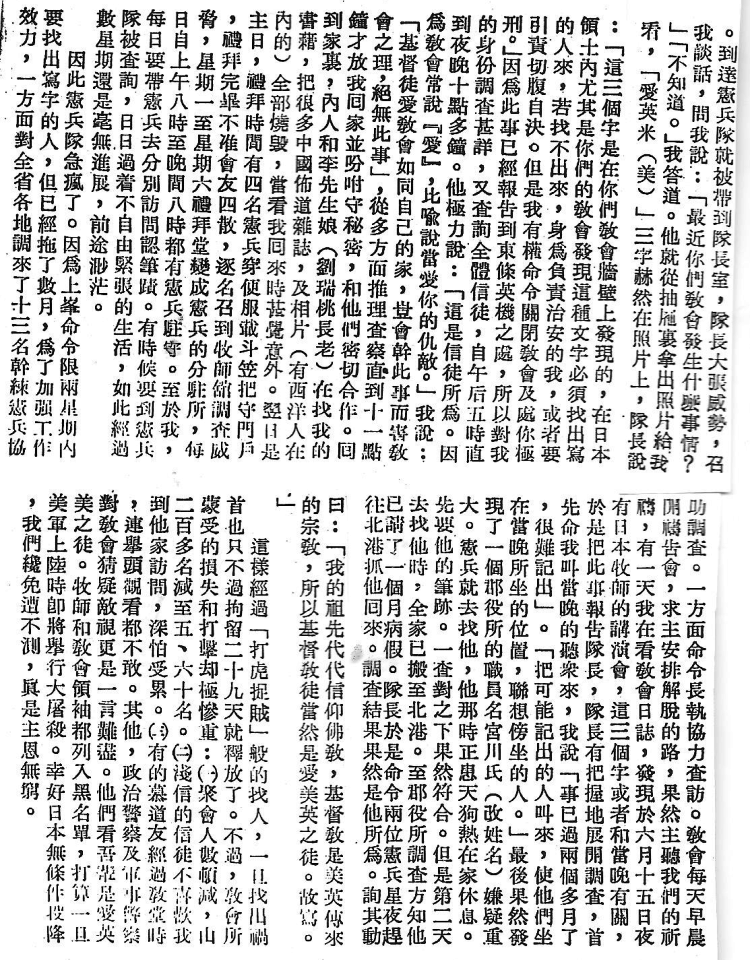 。到達憲兵隊就被帶到隊長室，隊長大張威勢，召
我談話，問我說：「最近你們敎會發生什麼事情？
」「不知道。」我答道。他就從抽屜裏拿出照片給我
看，「愛英米（美）」三字赫然在照片上，隊長說
：「這三個字是在你們敎會牆壁上發現的，在日本
領土內尤其是你們的敎會發現這種文字必須找出寫
的人來，若找不出來，身爲負責治安的我，或者要
引責切腹自決。但是我有權命令關閉敎會及處你極
刑。」因爲此事已經報告到東條英機之處，所以對我
的身份調查甚詳，又查詢全體信徒，自午后五時直
到夜晚十點多鐘。他極力說：「這是信徒所爲。因
爲敎會常說『愛』，比喩說當愛你的仇敵。」我說：
「基督徒愛敎會如同自己的家，豈會幹此事而害敎
會之理，絕無此事」，從多方面推理查察直到十一點
鐘才放我回家並吩咐守秘密，和他們密切合作。回
到家裏，內人和李先生娘（劉瑞桃長老）在找我的
書藉，把很多中國佈道雜誌，及相片（有西洋人在
內的）全部燒毀，當看我回來時甚覺意外。翌日是
主日，禮拜時間有四名憲兵穿便服戴斗笠把守門戶
，禮拜完畢不准會友四散，逐名召到牧師館調查威
脅，星期一至星期六禮拜堂變成憲兵的分駐所，每
日自上午八時至晚間八時都有憲兵駐守。至於我，
每日要帶憲兵去分別訪問認筆蹟。有時候要到憲兵
隊被查詢，日日過着不自由緊張的生活，如此經過
數星期還是毫無進展，前途渺茫。
因此憲兵隊急瘋了。因爲上峯命令限兩星期內
要找出寫字的人，但已經拖了數月，爲了加强工作
效力，一方面對全省各地調來了十三名幹練憲兵協
助調查。一方面命令長執協力查訪。敎會每天早晨
開禱告會，求主安排解脫的路，果然主聽我們的祈
禱，有一天我在看敎會日誌，發現於六月十五日夜
有日本牧師的講演會，這三個字或者和當晚有關，
於是把此事報告隊長，隊長有把握地展開調查，首
先命我叫當晚的聽衆來，我說「事已過兩個多月了
，很難記出」。「把可能記出的人叫來，使他們坐
在當晚所坐的位置，聯想傍坐的人。」最後果然發
現了一個郡役所的職員名宮川氏（改姓名）嫌疑重
大。憲兵就去找他，他那時正患天狗熱在家休息。
先要他的筆跡。一查對之下果然符合。但是第二天
去找他時，全家已搬至北港。至郡役所調查方知他
已請了一個月病假。隊長於是命令兩位憲兵星夜趕
往北港抓他回來。調查結果果然是他所爲。詢其動
曰：「我的祖先代代信仰佛敎，基督敎是美英傳來
的宗敎，所以基督敎徒當然是愛美英之徒。故寫。
」
這樣經過「打虎捉賊」般的找人，一旦找出禍
首也只不過拘留二十九天就釋放了。不過，敎會所
蒙受的損失和打擊却極慘重：㈠聚會人數頓減，由
二百多名減至五、六十名。㈡淺信的信徒不喜歡我
到他家訪問，深怕受累。㈢有的慕道友經過敎堂時
，連舉頭觀看都不敢。其他，政治警察及軍事警察
對敎會猜疑敵視更是一言難盡。他們看吾輩是愛英
美之徒。牧師和敎會領袖都列入黑名單，打算一旦
美軍上陸時卽將舉行大屠殺。幸好日本無條件投降
，我們纔免遭不測，眞是主恩無窮。